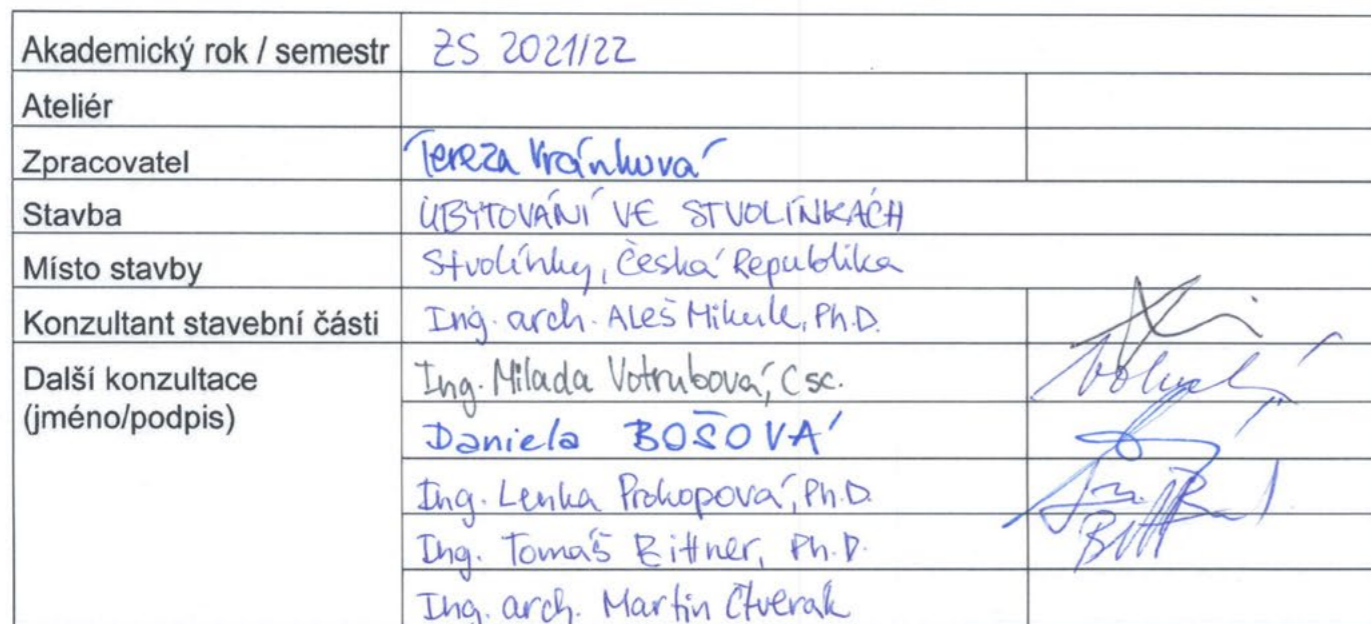 Akademický rok / semestr ZS 2021/22
Ateliér
Zpracovatel Tereza Vránková
Stavba UBYTOVÁNÍ VE STVOLÍNKÁCH
Místo stavby Stvolínky, Česká Republika
Konzultant stavební části Ing. arch. Aleš Mikule, Ph.D.
Další konzultace Ing. Milada Votrubová, Csc.
(jméno/podpis)
Daniela BOŠOVÁ
Ing. Lenka Prokopová, Ph.D.
Ing. Tomáš Bittner, Ph.D.
Ing. arch. Martin Čtverák